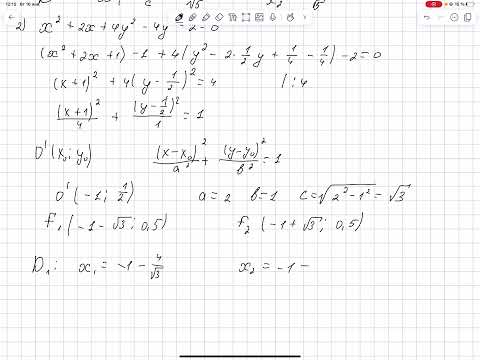 2) x² + 2x + 4y² - 4y - 2 = 0
(x² + 2x + 1) - 1 + 4(y² - 2·1/2y + 1/4 - 1/4) - 2 = 0
(x+1)² + 4(y - 1/2)² = 4 | : 4
(x+1)²/4 + (y - 1/2)²/1 = 1
O'(x₀; y₀) (x-x₀)²/a² + (y-y₀)²/b² = 1
O'(-1; 1/2) a = 2 b = 1 c = √(2² - 1²) = √3
F₁(-1 - √3; 0,5) F₂(-1 + √3; 0,5)
D₁: x₁ = -1 - 4/√3 x₂ = -1 -